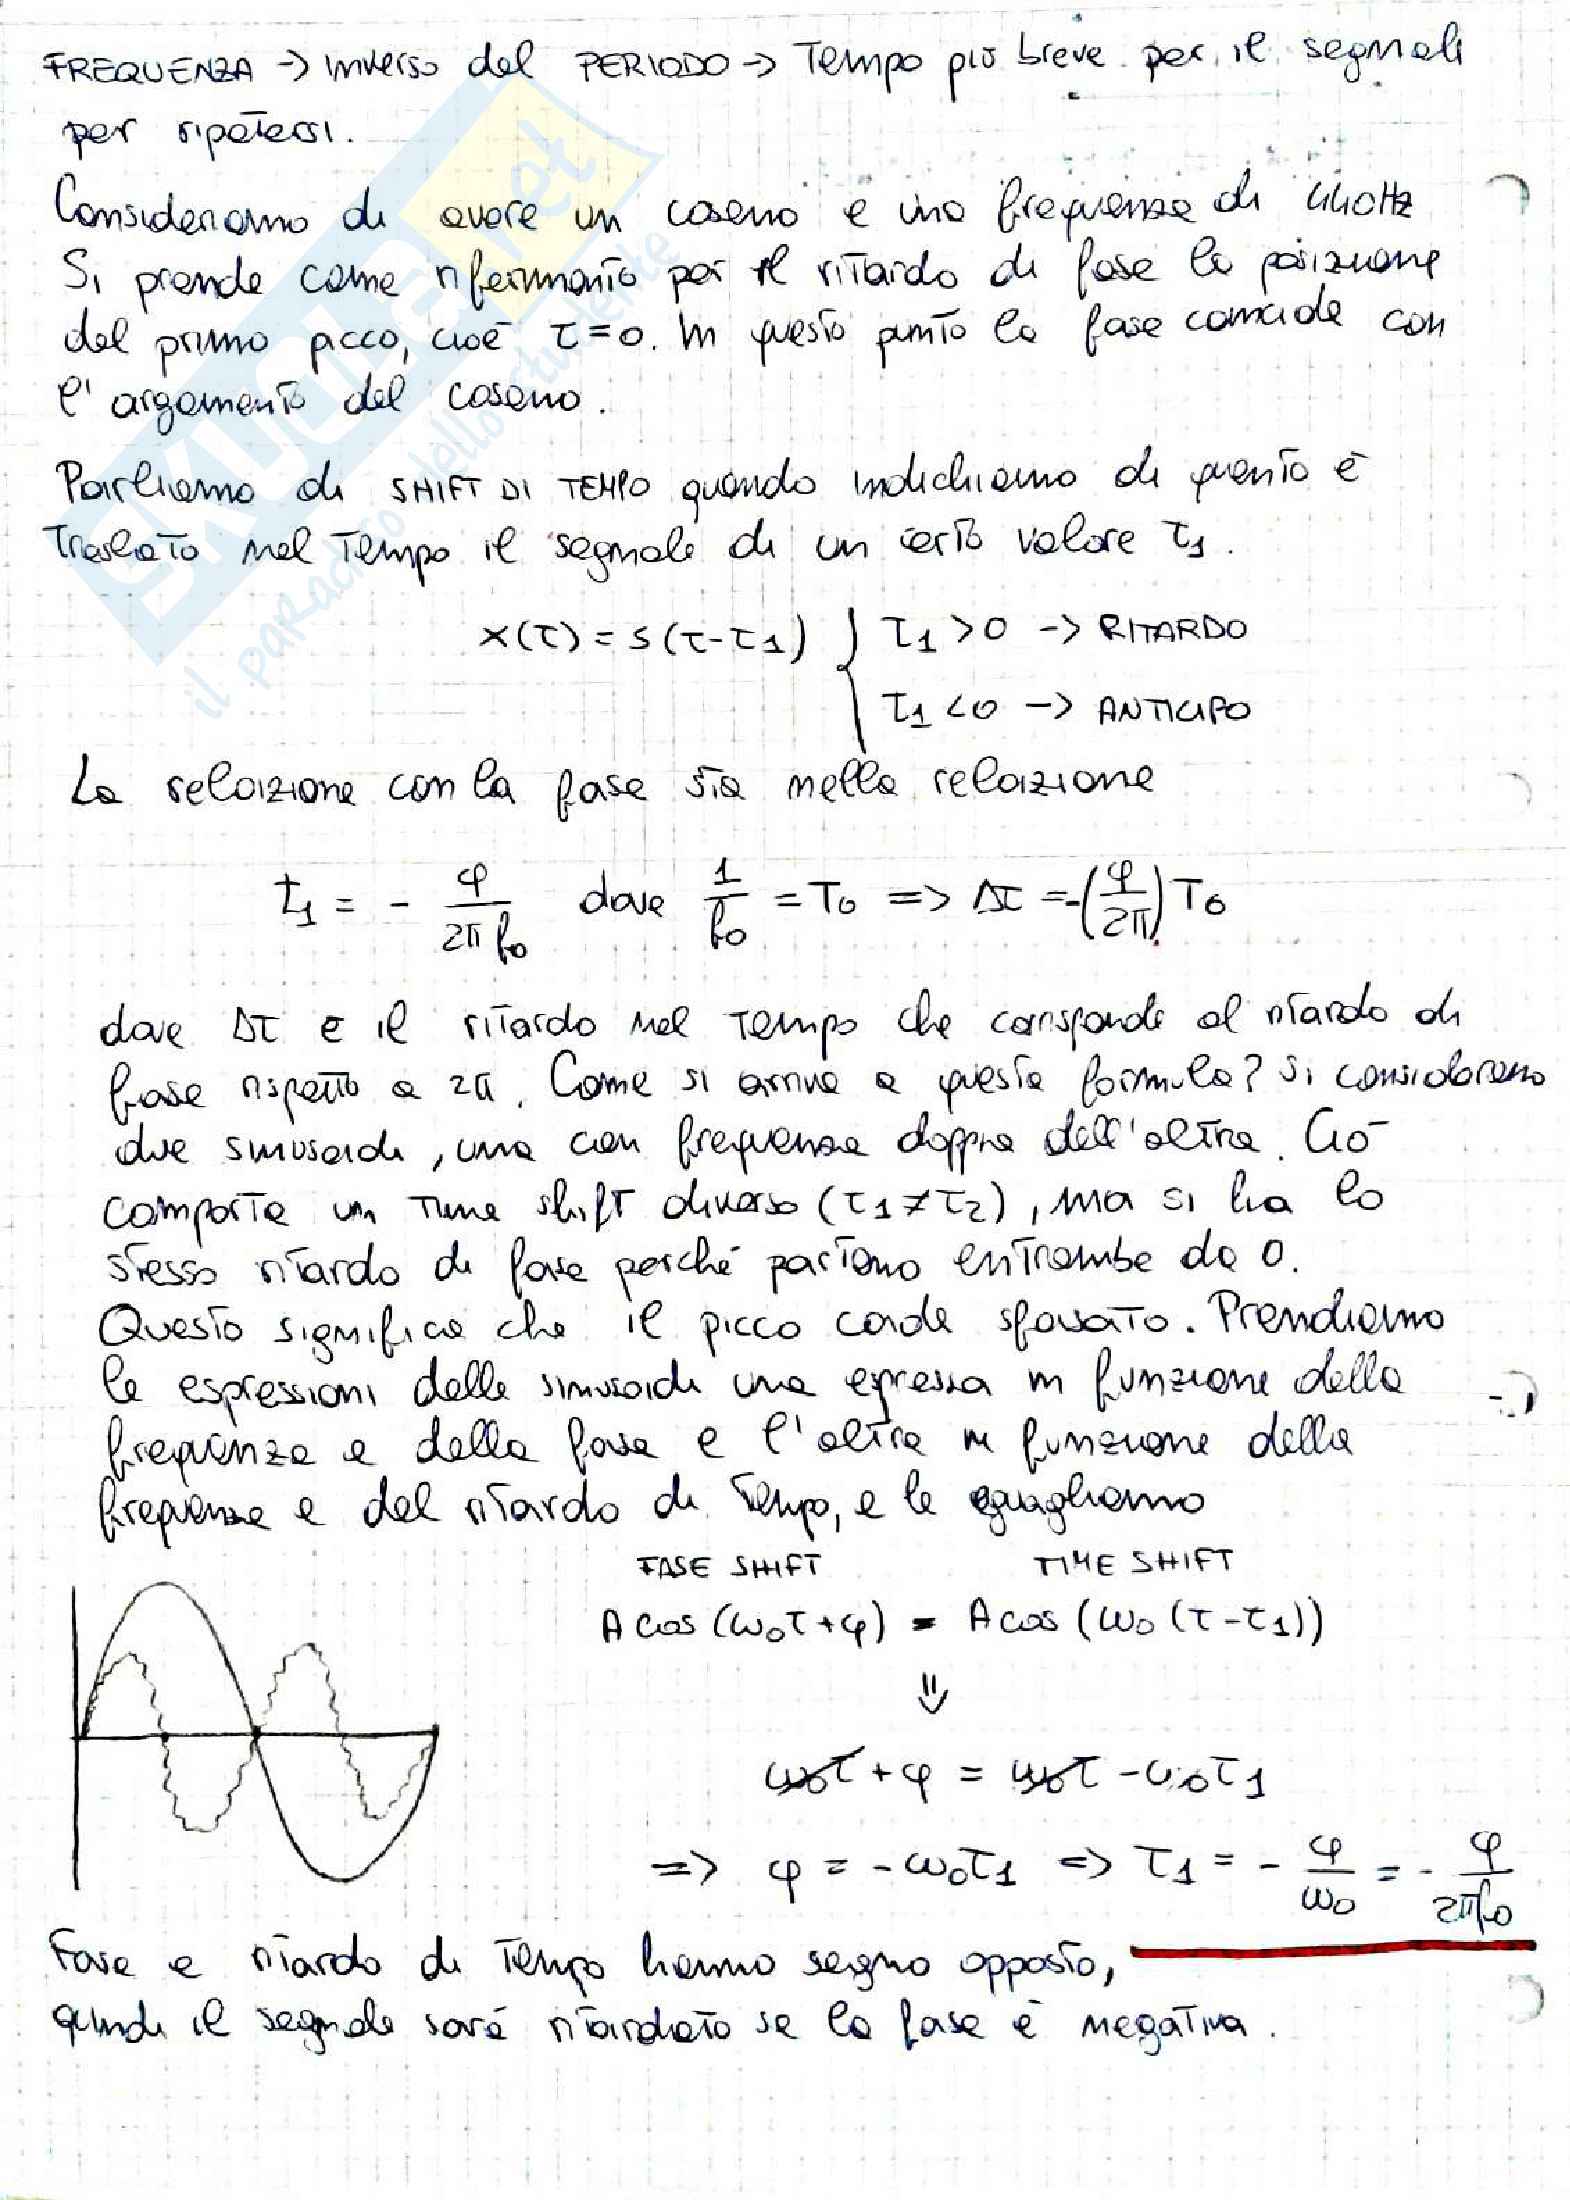 FREQUENZA -> inverso del PERIODO -> Tempo più breve per il segnale
per ripetersi.
Consideriamo di avere un coseno e una frequenza di 440Hz
Si prende come riferimento per il ritardo di fase la posizione
del primo picco, cioè t=0. In questo punto la fase coincide con
l'argomento del coseno.
Parliamo di SHIFT DI TEMPO quando indichiamo di quanto è
traslato nel tempo il segnale di un certo valore t1.
x(t) = s(t-t1) { t1 >0 -> RITARDO
t1 <0 -> ANTICIPO
La relazione con la fase sta nella relazione
t1 = - φ/2πf0 dove 1/f0 = T0 => Δt = -(φ/2π) T0
dove Δt è il ritardo nel tempo che corrisponde al ritardo di
fase rispetto a 2π. Come si arriva a questa formula? Si considerano
due sinusoidi, una con frequenza doppia dell'altra. Ciò
comporta un time shift diverso (t1≠t2), ma si ha lo
stesso ritardo di fase perché partono entrambe da 0.
Questo significa che il picco cade sfasato. Prendiamo
le espressioni delle sinusoidi una espressa in funzione della
frequenza e della fase e l'altra in funzione della
frequenza e del ritardo di tempo, e le eguagliamo
FASE SHIFT TIME SHIFT
A cos (ω0t+φ) = A cos (ω0 (t-t1))
⇓
ω0t + φ = ω0t - ω0t1
=> φ = -ω0t1 => t1 = - φ/ω0 = - φ/2πf0
Fase e ritardo di tempo hanno segno opposto,
quindi il segnale sarà ritardato se la fase è negativa.
SKUOLA.net
il paradiso dello studente